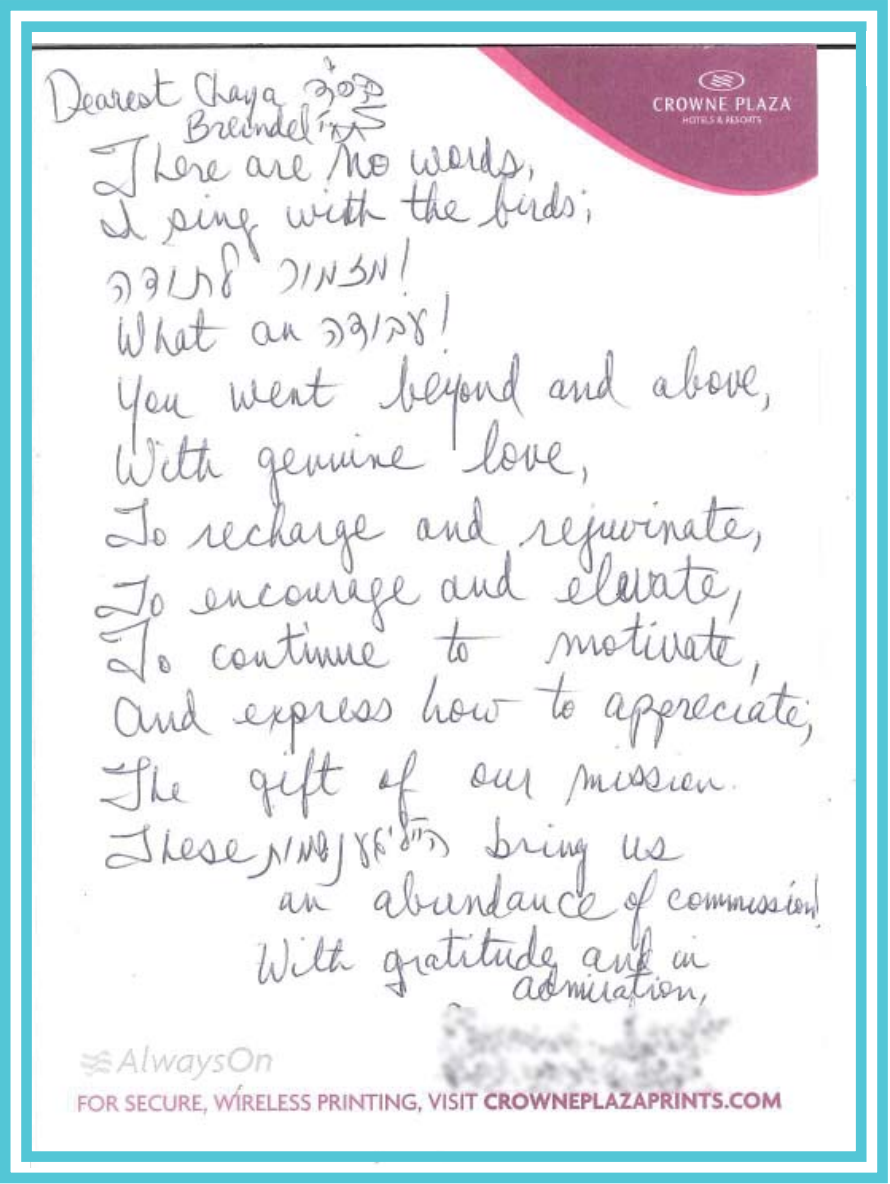 CROWNE PLAZA
HOTELS & RESORTS
Dearest Chaya
Breindel
There are no words,
I sing with the birds;
מזמור לתודה!
What an עבודה!
You went beyond and above,
With genuine love,
To recharge and rejuvinate,
To encourage and elevate,
To continue to motivate,
And express how to appreciate;
The gift of our mission.
These הייליגע נשמות bring us
an abundance of commission!
With gratitude and in
admiration,
AlwaysOn
FOR SECURE, WIRELESS PRINTING, VISIT CROWNEPLAZAPRINTS.COM